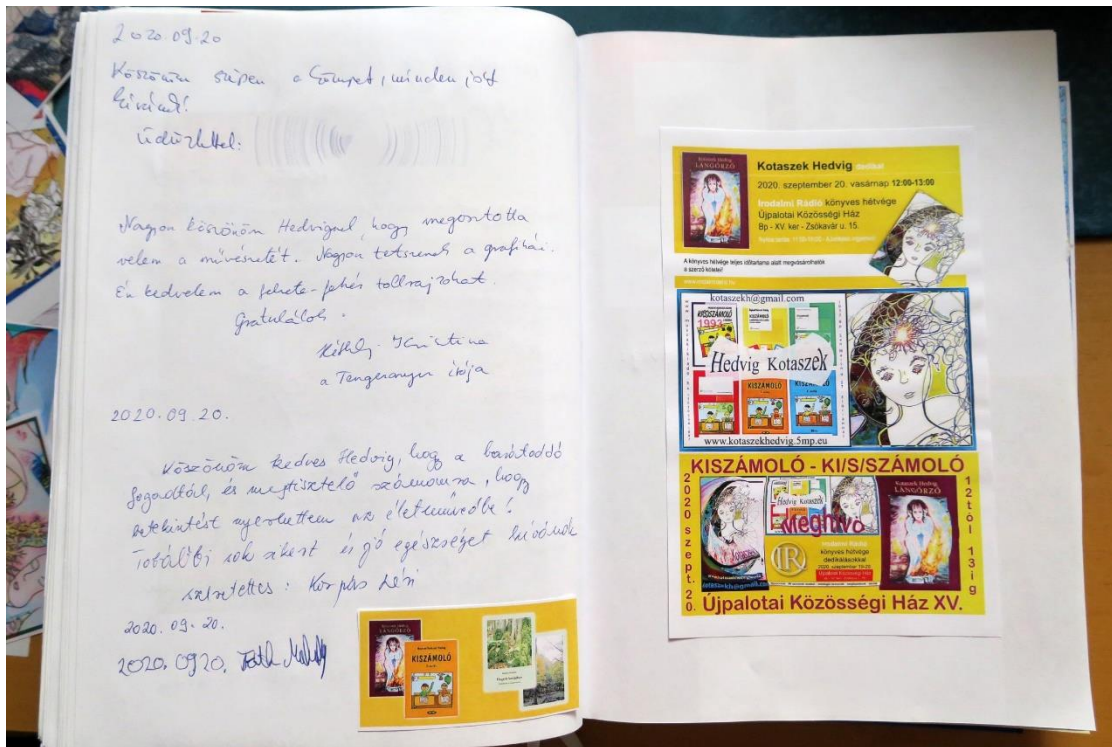 2020.09.20
Köszönöm szépen a könyvet, minden jót
kívánok!
Üdvözlettel:
Nagyon köszönöm Hedvignek, hogy megosztotta
velem a művészetét. Nagyon tetszenek a grafikái.
Én kedvelem a fekete-fehér tollrajzokat.
Gratulálok.
Krisztina
a Tengeranyu írója
2020.09.20.
Köszönöm kedves Hedvig, hogy a barátoddá
fogadtál, és megtisztelő számomra, hogy
betekintést nyerhettem az életművedbe!
További sok sikert és jó egészséget kívánok
szeretettel: Korpás Léni
2020.09.20.
2020.0920.
Kotaszek Hedvig
LÁNGŐRZŐ
KISZÁMOLÓ
Kotaszek Hedvig
LÁNGŐRZŐ
Kotaszek Hedvig dedikál
2020. szeptember 20. vasárnap 12:00-13:00
Irodalmi Rádió könyves hétvége
Újpalotai Közösségi Ház
Bp - XV. ker - Zsókavár u. 15.
A könyves hétvége teljes időtartama alatt megvásárolhatók
a szerző kötetei!
kotaszekh@gmail.com
KISISZÁMOLÓ
1993
KISZÁMOLÓ
Hedvig Kotaszek
KISZÁMOLÓ
KISZÁMOLÓ
www.kotaszekhedvig.5mp.eu
KISZÁMOLÓ - KI/S/SZÁMOLÓ
2020 szept. 20.
12től 13ig
Hedvig Kotaszek
Meghívó
Kotaszek Hedvig
LÁNGŐRZŐ
IR
Irodalmi Rádió
könyves hétvége
dedikálásokkal
2020. szeptember 19-20
Újpalotai Közösségi Ház
kotaszekh@gmail.com
Újpalotai Közösségi Ház XV.